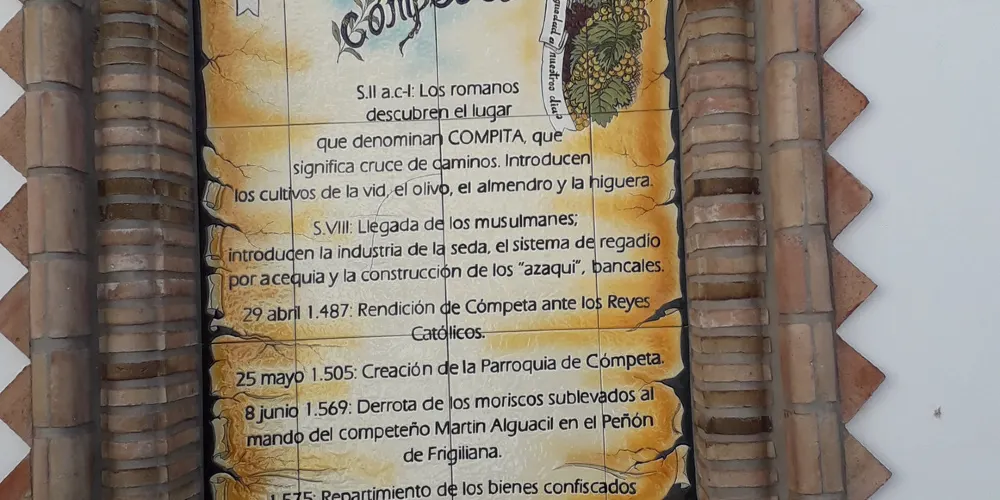 S.II a.c-I: Los romanos
descubren el lugar
que denominan COMPITA, que
significa cruce de caminos. Introducen
los cultivos de la vid, el olivo, el almendro y la higuera.
S.VIII: Llegada de los musulmanes;
introducen la industria de la seda, el sistema de regadío
por acequia y la construcción de los "azaqui", bancales.
29 abril 1.487: Rendición de Cómpeta ante los Reyes
Católicos.
25 mayo 1.505: Creación de la Parroquia de Cómpeta.
8 junio 1.569: Derrota de los moriscos sublevados al
mando del competeño Martin Alguacil en el Peñón
de Frigiliana.
1.575: Repartimiento de los bienes confiscados